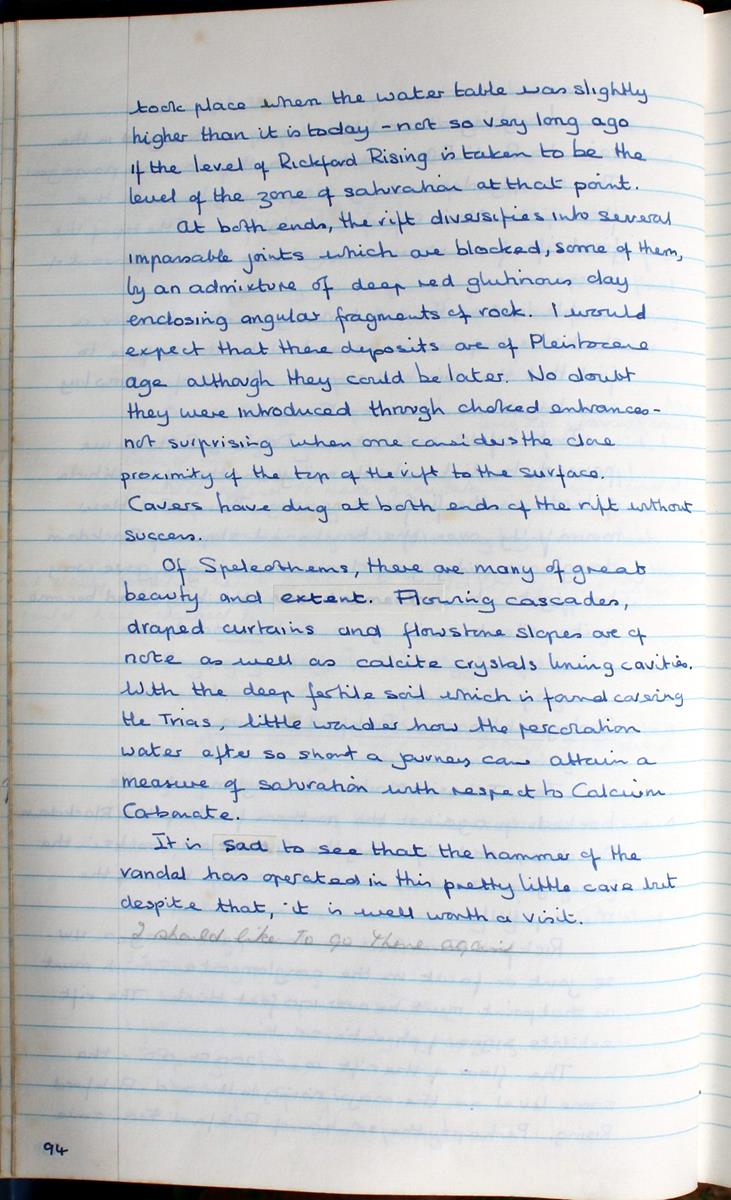 took place when the water table was slightly
higher than it is today - not so very long ago
if the level of Rickford Rising is taken to be the
level of the zone of saturation at that point.
At both ends, the rift diversifies into several
impassable joints which are blocked, some of them,
by an admixture of deep red glutinous clay
enclosing angular fragments of rock. I would
expect that these deposits are of Pleistocene
age although they could be later. No doubt
they were introduced through choked entrances -
not surprising when one considers the close
proximity of the top of the rift to the surface.
Cavers have dug at both ends of the rift without
success.
Of Speleothems, there are many of great
beauty and extent. Flowing cascades,
draped curtains and flowstone slopes are of
note as well as calcite crystals lining cavities.
With the deep fertile soil which is found covering
the Trias, little wonder how the percolation
water after so short a journey can attain a
measure of saturation with respect to Calcium
Carbonate.
It is sad to see that the hammer of the
vandal has operated in this pretty little cave but
despite that, it is well worth a visit.
I should like to go there again
94